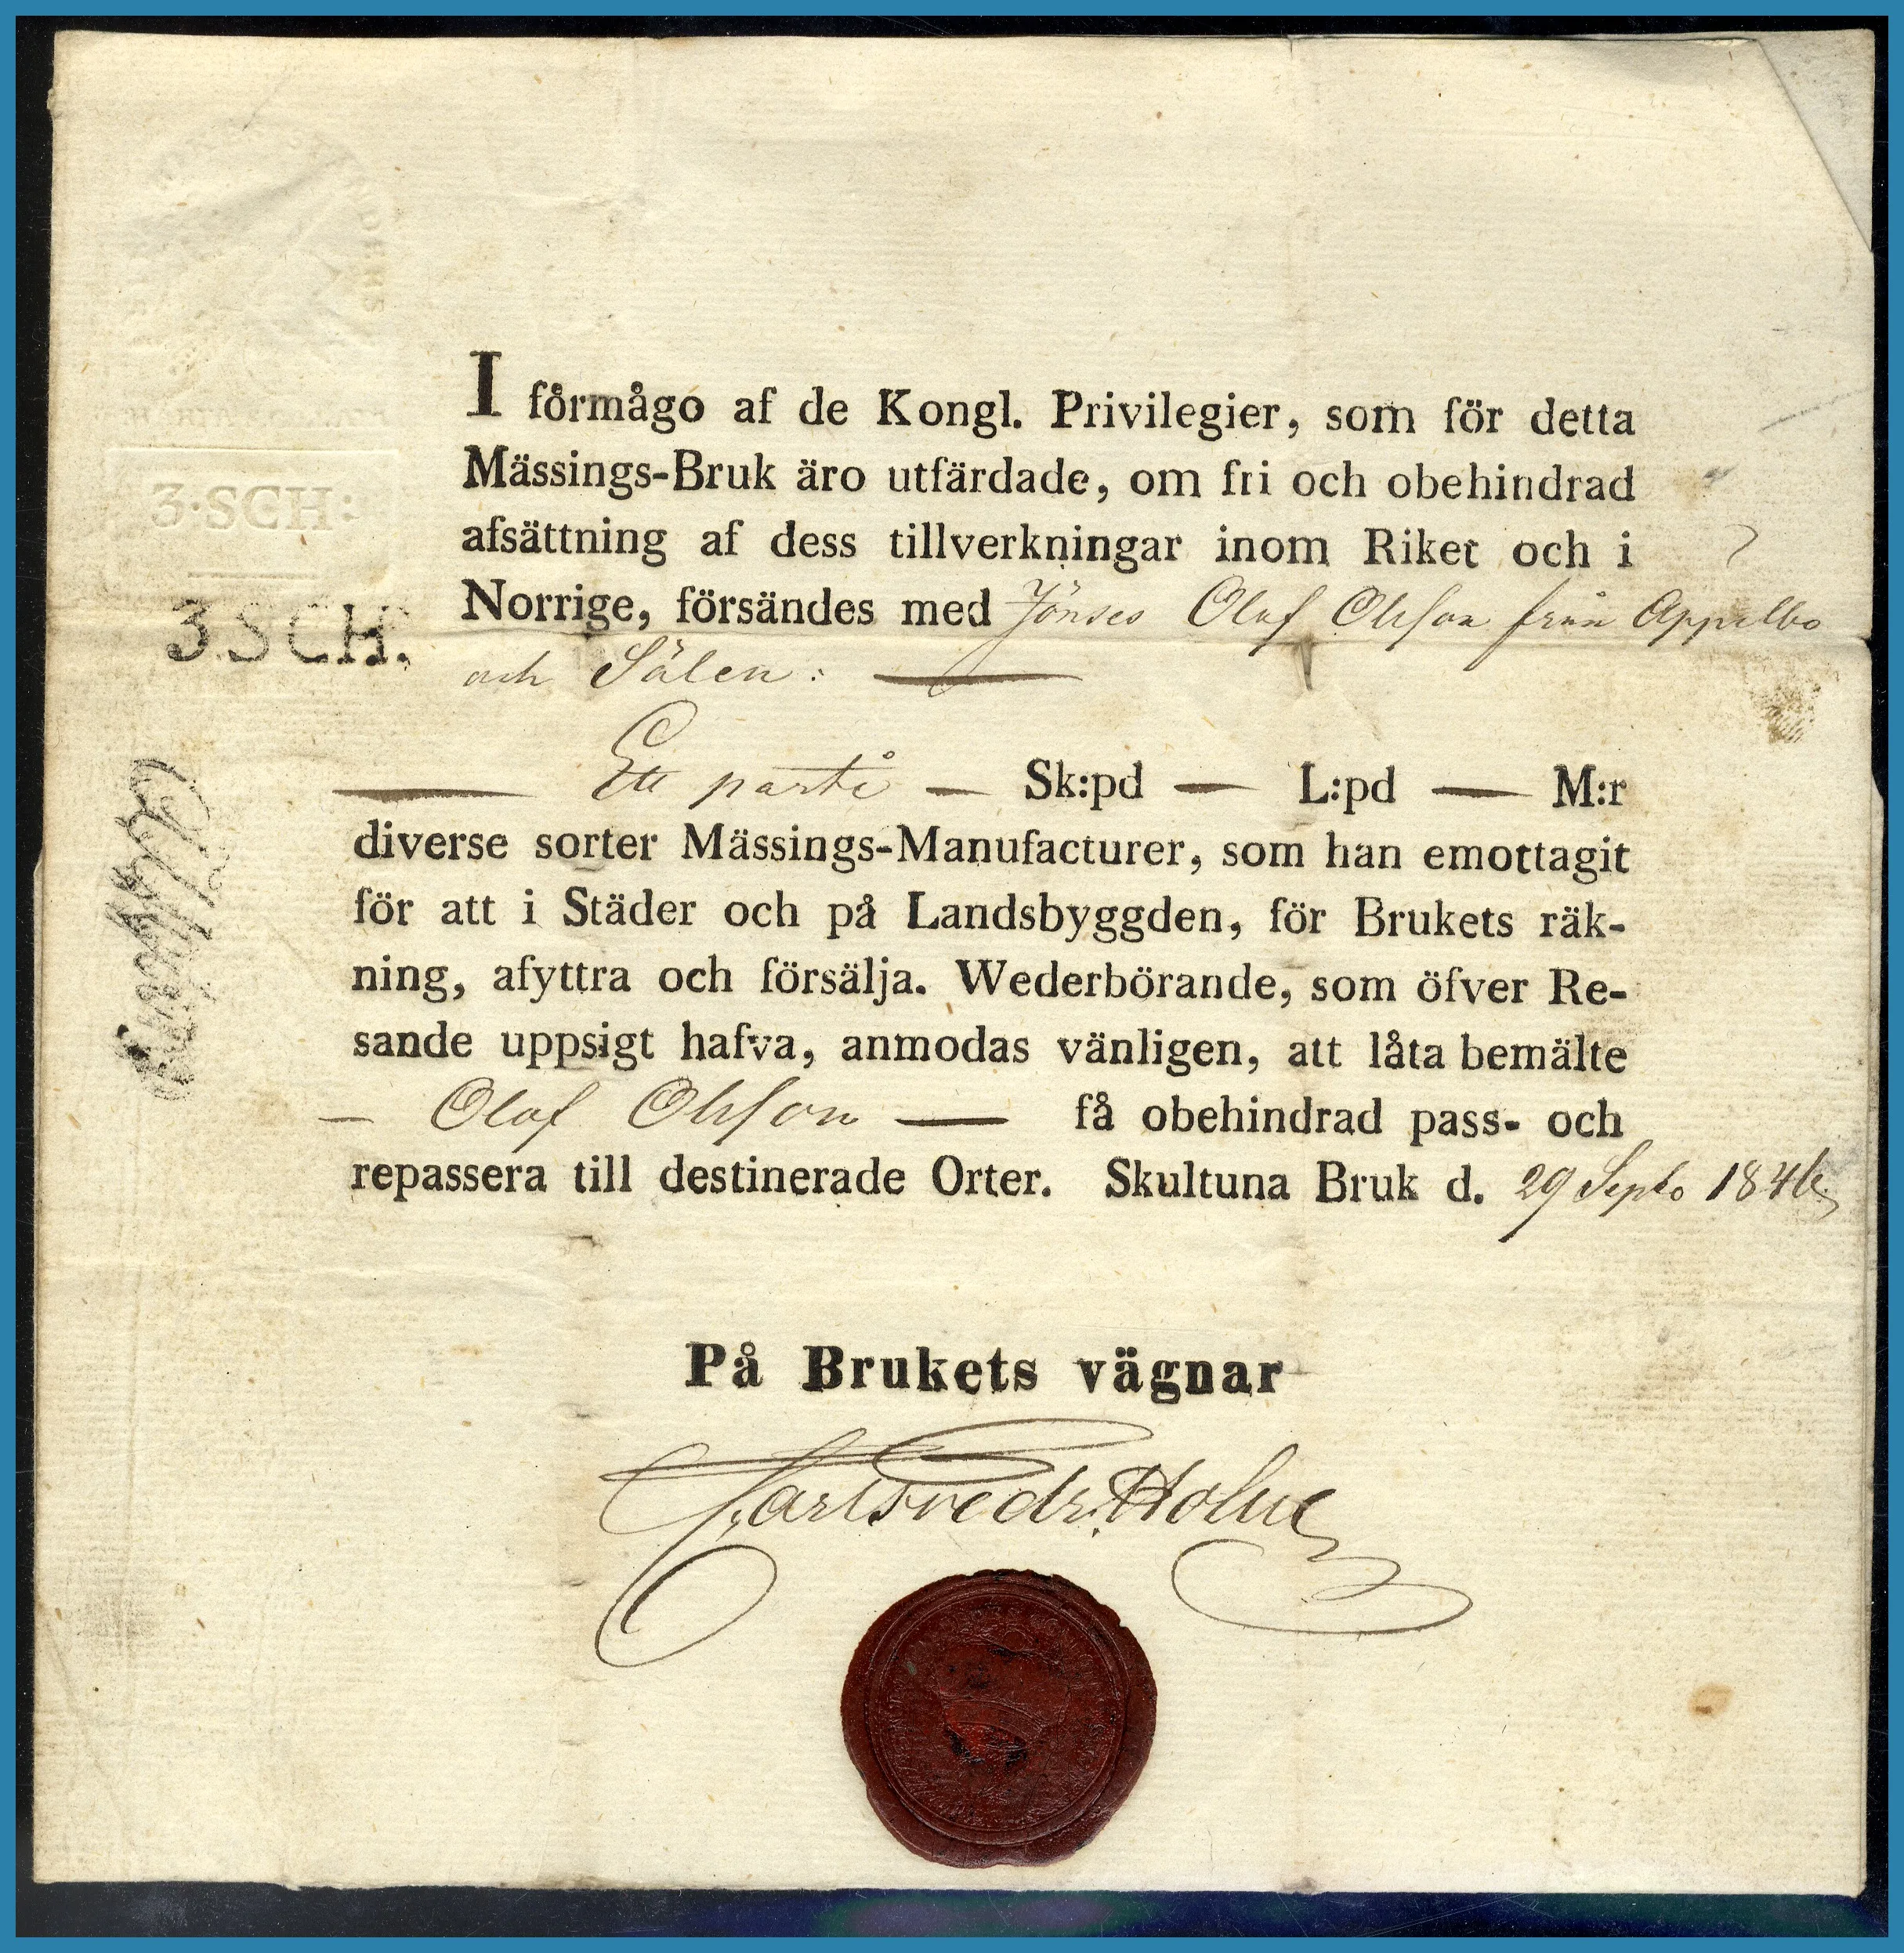 3·SCH:
3.SCH.
I förmågo af de Kongl. Privilegier, som för detta
Mässings-Bruk äro utfärdade, om fri och obehindrad
afsättning af dess tillverkningar inom Riket och i
Norrige, försändes med Jönses Olof Olsson från Appelbo
och Sälen:
Ett parti — Sk:pd — L:pd — M:r
diverse sorter Mässings-Manufacturer, som han emottagit
för att i Städer och på Landsbyggden, för Brukets räk-
ning, afyttra och försälja. Wederbörande, som öfver Re-
sande uppsigt hafva, anmodas vänligen, att låta bemälte
— Olof Olsson — få obehindrad pass- och
repassera till destinerade Orter. Skultuna Bruk d. 29 Septb 1846
På Brukets vägnar